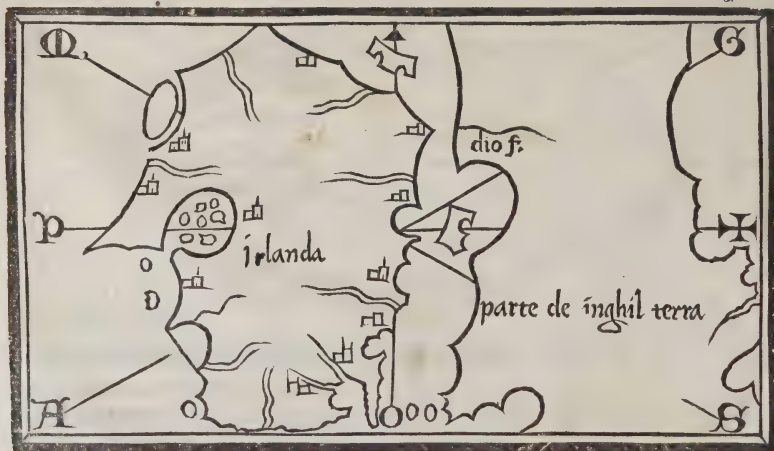 M G
dio f:
P
irlanda
parte de inghil terra
A O S